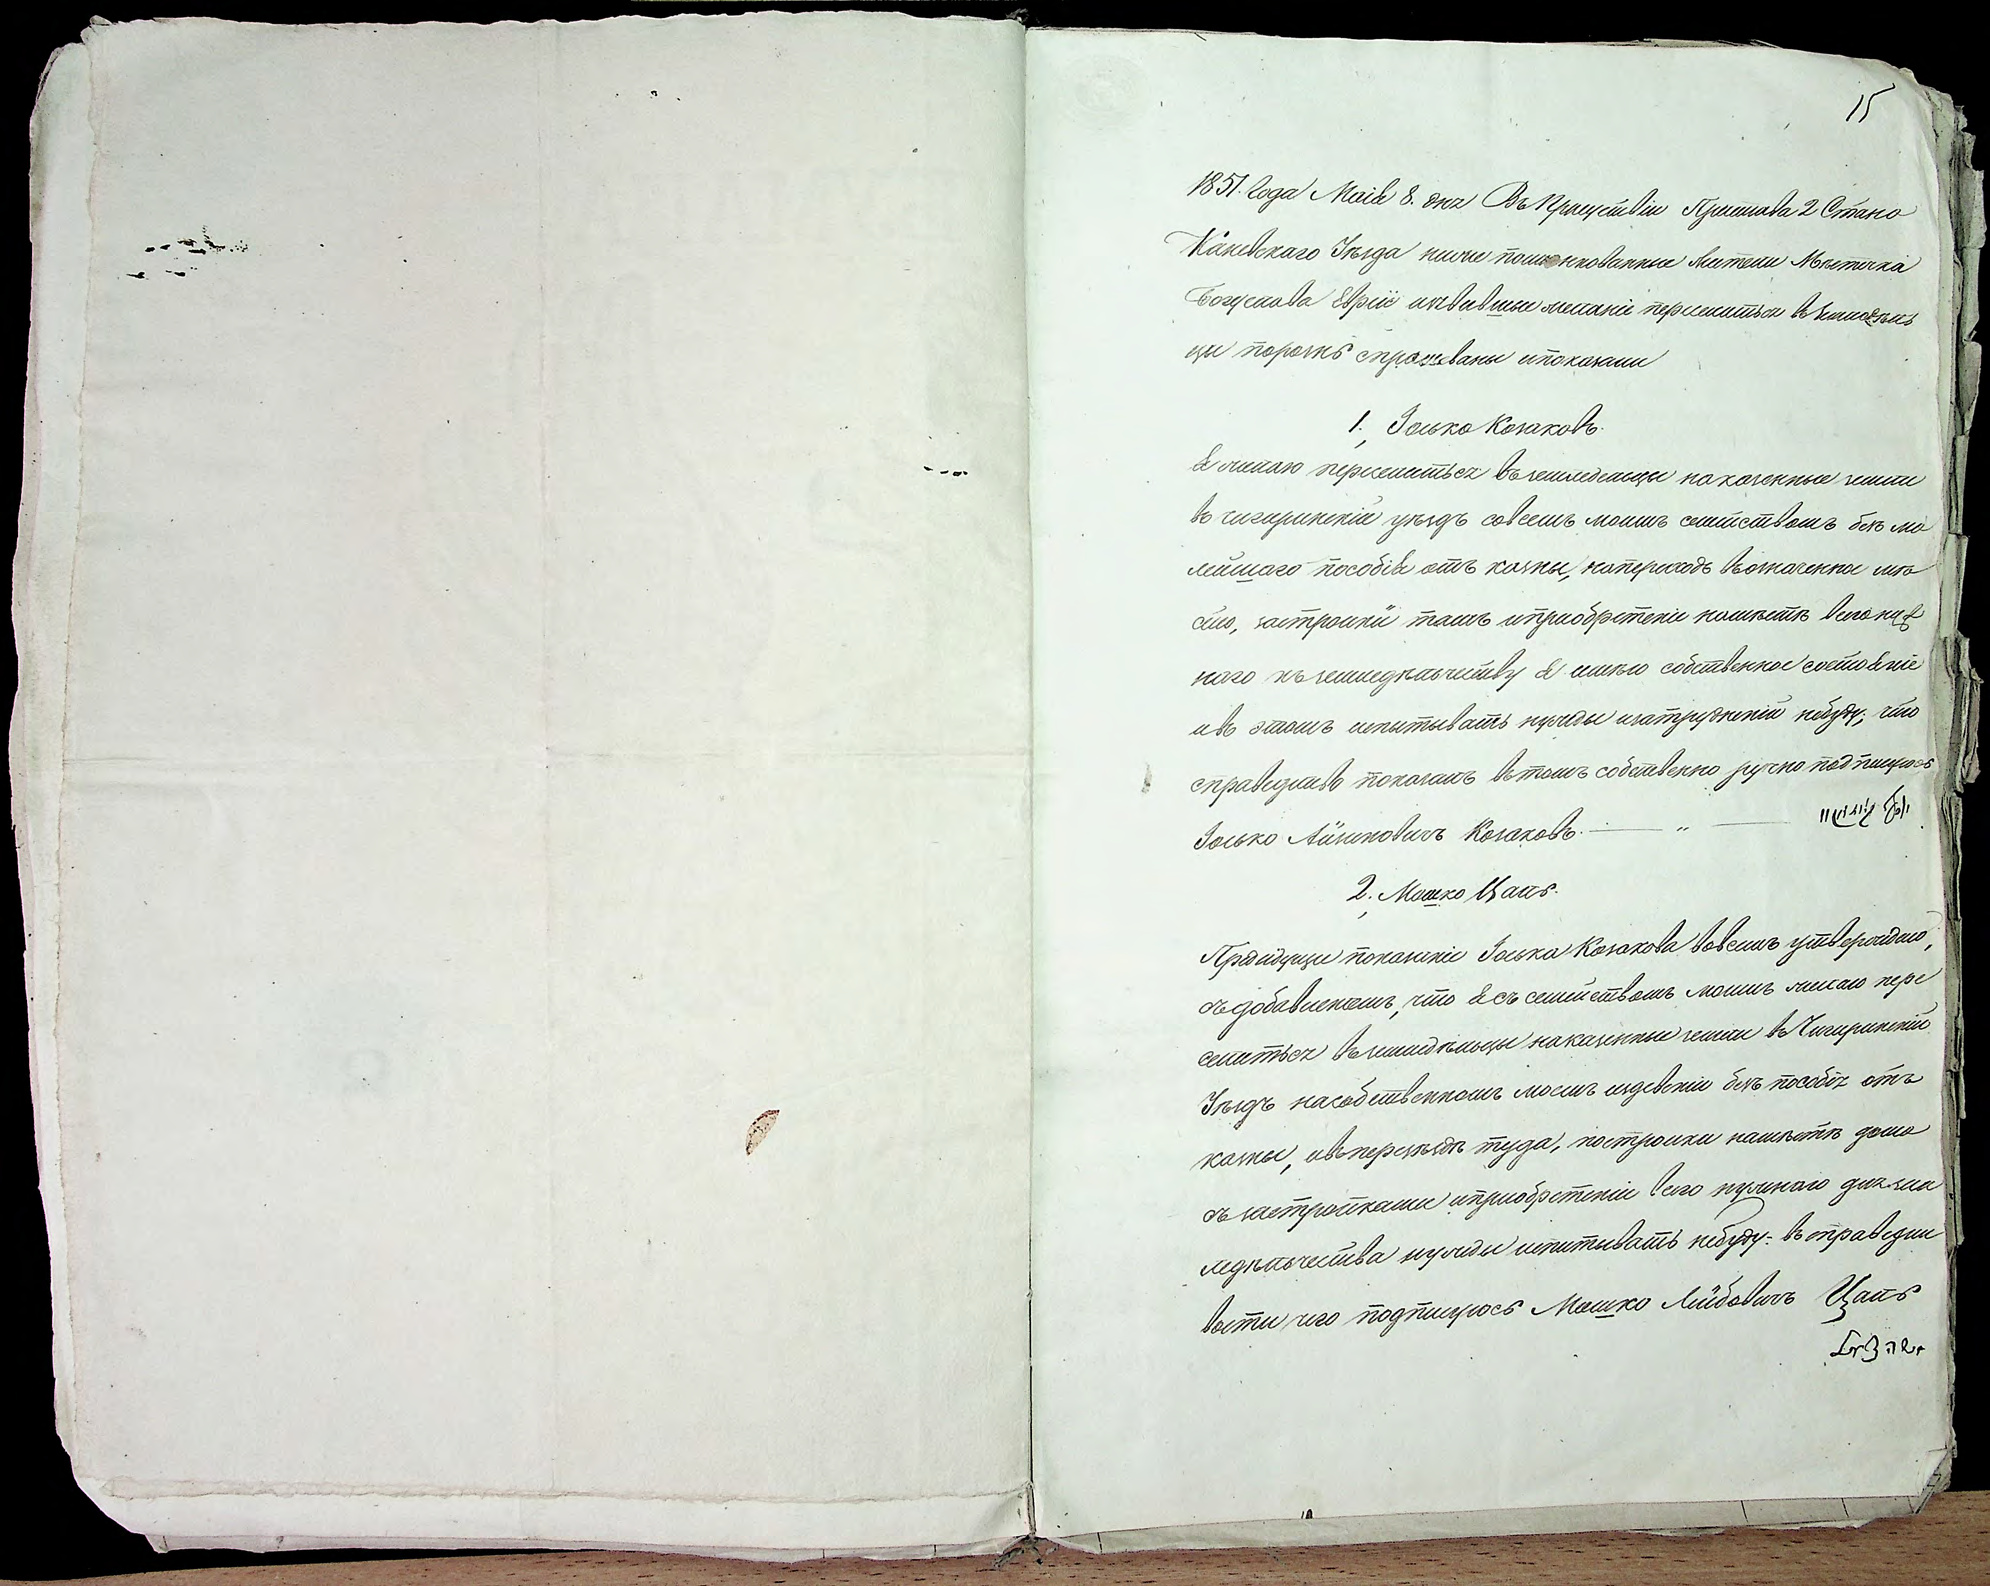 15
1851. Года Маія 8. дня Въ Присуствіи Пристава 2 Стана
Каневскаго Уѣзда ниже поименованные жители Мѣстечка
Богуслава Евреи изъявившые желаніе переселиться въ земледѣль
цы порознь спрошеваны и показали
1. Iосько Козаковъ.
Я желаю переселиться въ земледельцы на казенные земли
въ чигиринскій уѣздъ со всемъ моимъ семействомъ безъ ма
лейшаго пособія отъ казны, на переходъ въ означенное мѣ
сто, застройки тамъ и приобретеніе на мѣстѣ всего нуж
наго къ земледѣльчеству я имѣю собственное состояніе
и въ этомъ испытывать нужды и затрудненій небуду; что
справедливо показалъ въ томъ собственно ручно подпишусь
Iосько Айзиковичъ Козаковъ. — „ —
2. Мошко Цапъ.
Предидуще показаніе Iоська Козакова во всемъ утверждаю,
съ добавленіемъ, что я съ семействомъ моимъ желаю пере
селиться въ земледѣльцы на казенные земли въ Чигиринскій
Уѣздъ на собственномъ моемъ издевеніи безъ пособія отъ
казны, и въ переѣздѣ туда, постройки на мѣстѣ дома
съ застройками и приобретеніи всего нужнаго для зем
ледѣльчества нужды испытывать небуду: въ справедли
вости чего подпишусь Мошко Лейбовичъ Цапъ
משה צאפ